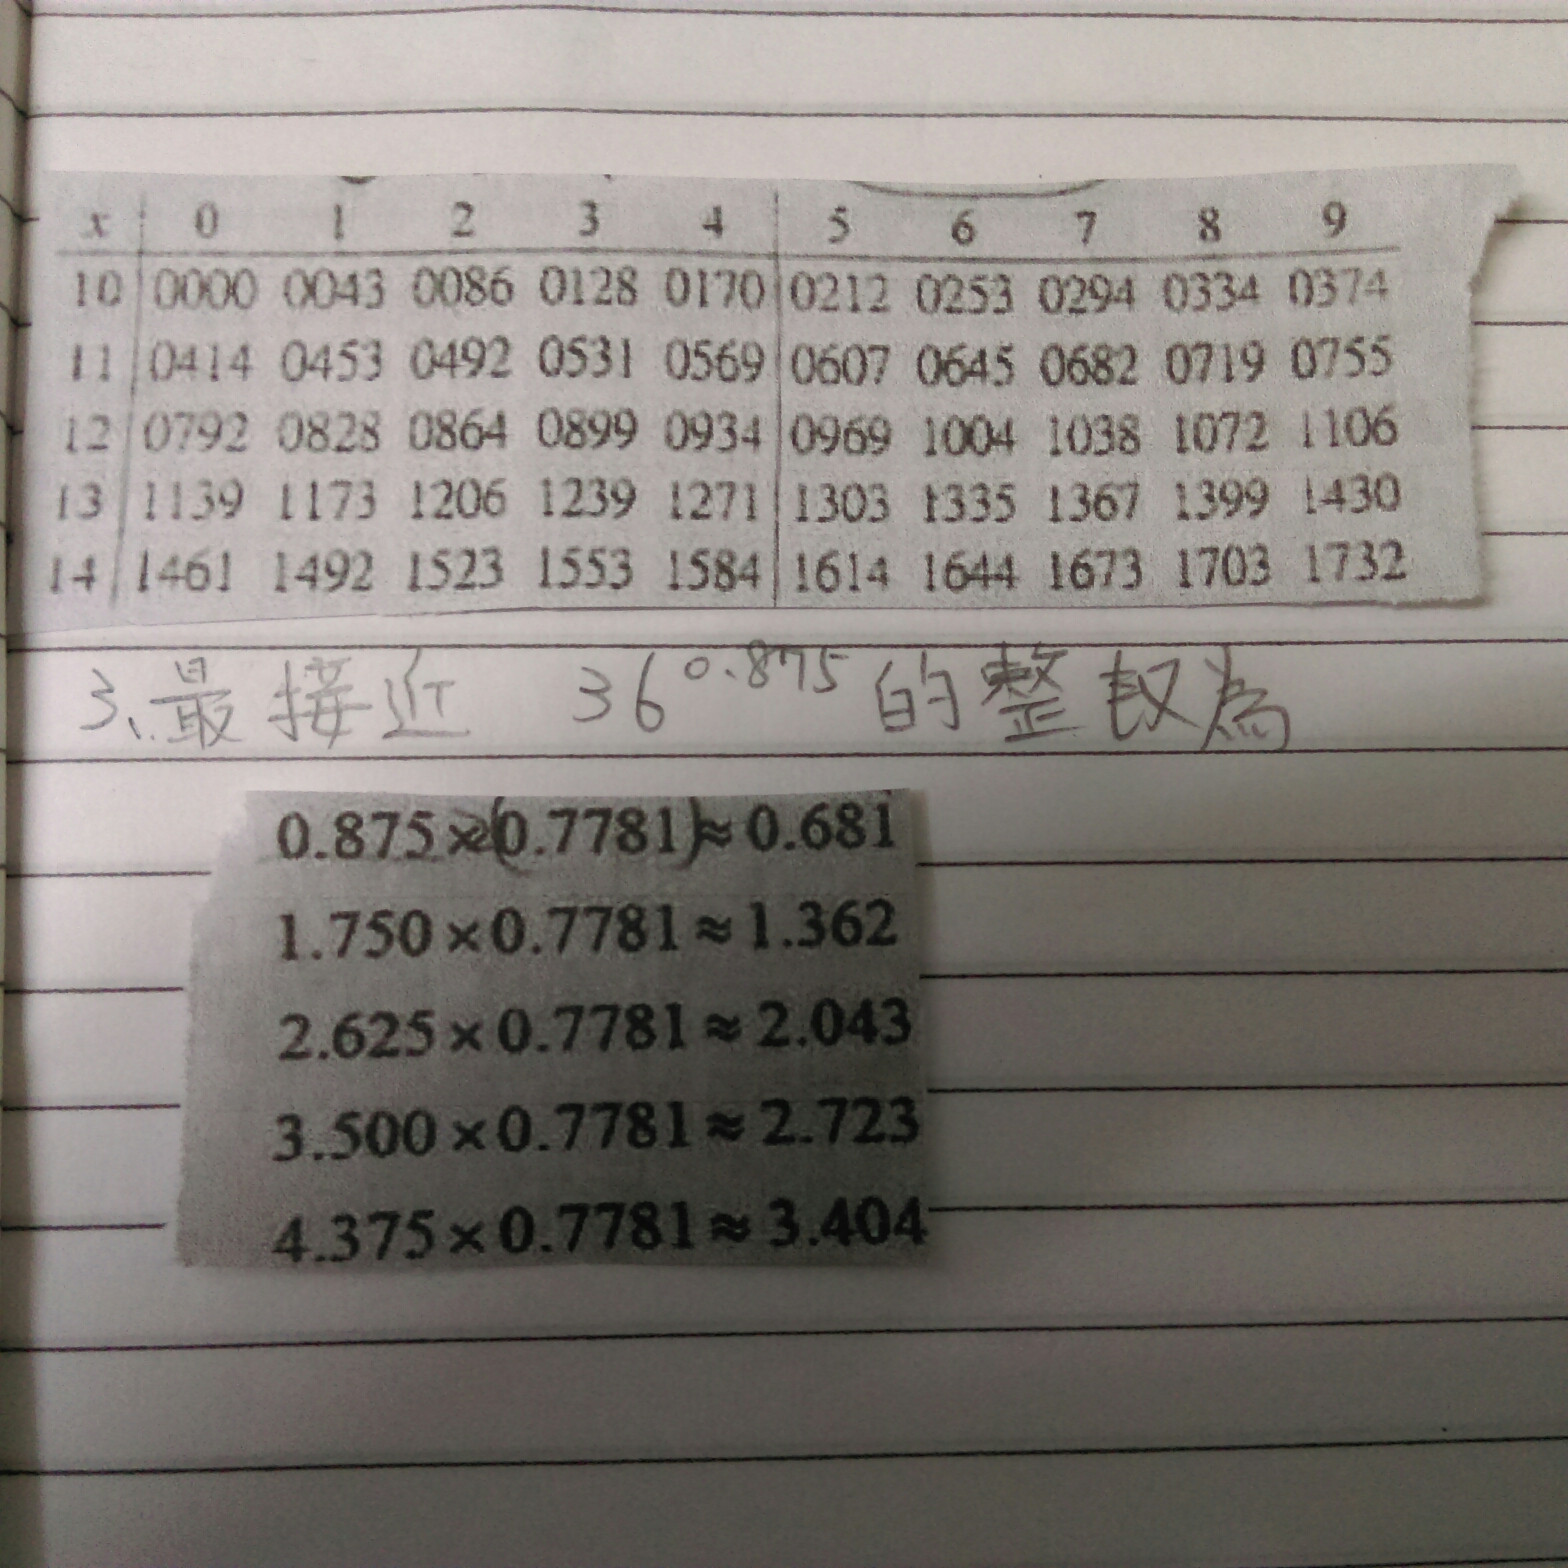 x 0 1 2 3 4 5 6 7 8 9
10 0000 0043 0086 0128 0170 0212 0253 0294 0334 0374
11 0414 0453 0492 0531 0569 0607 0645 0682 0719 0755
12 0792 0828 0864 0899 0934 0969 1004 1038 1072 1106
13 1139 1173 1206 1239 1271 1303 1335 1367 1399 1430
14 1461 1492 1523 1553 1584 1614 1644 1673 1703 1732
3、最接近 36^0.875 的整数為
0.875×(0.7781)≈0.681
1.750×0.7781≈1.362
2.625×0.7781≈2.043
3.500×0.7781≈2.723
4.375×0.7781≈3.404